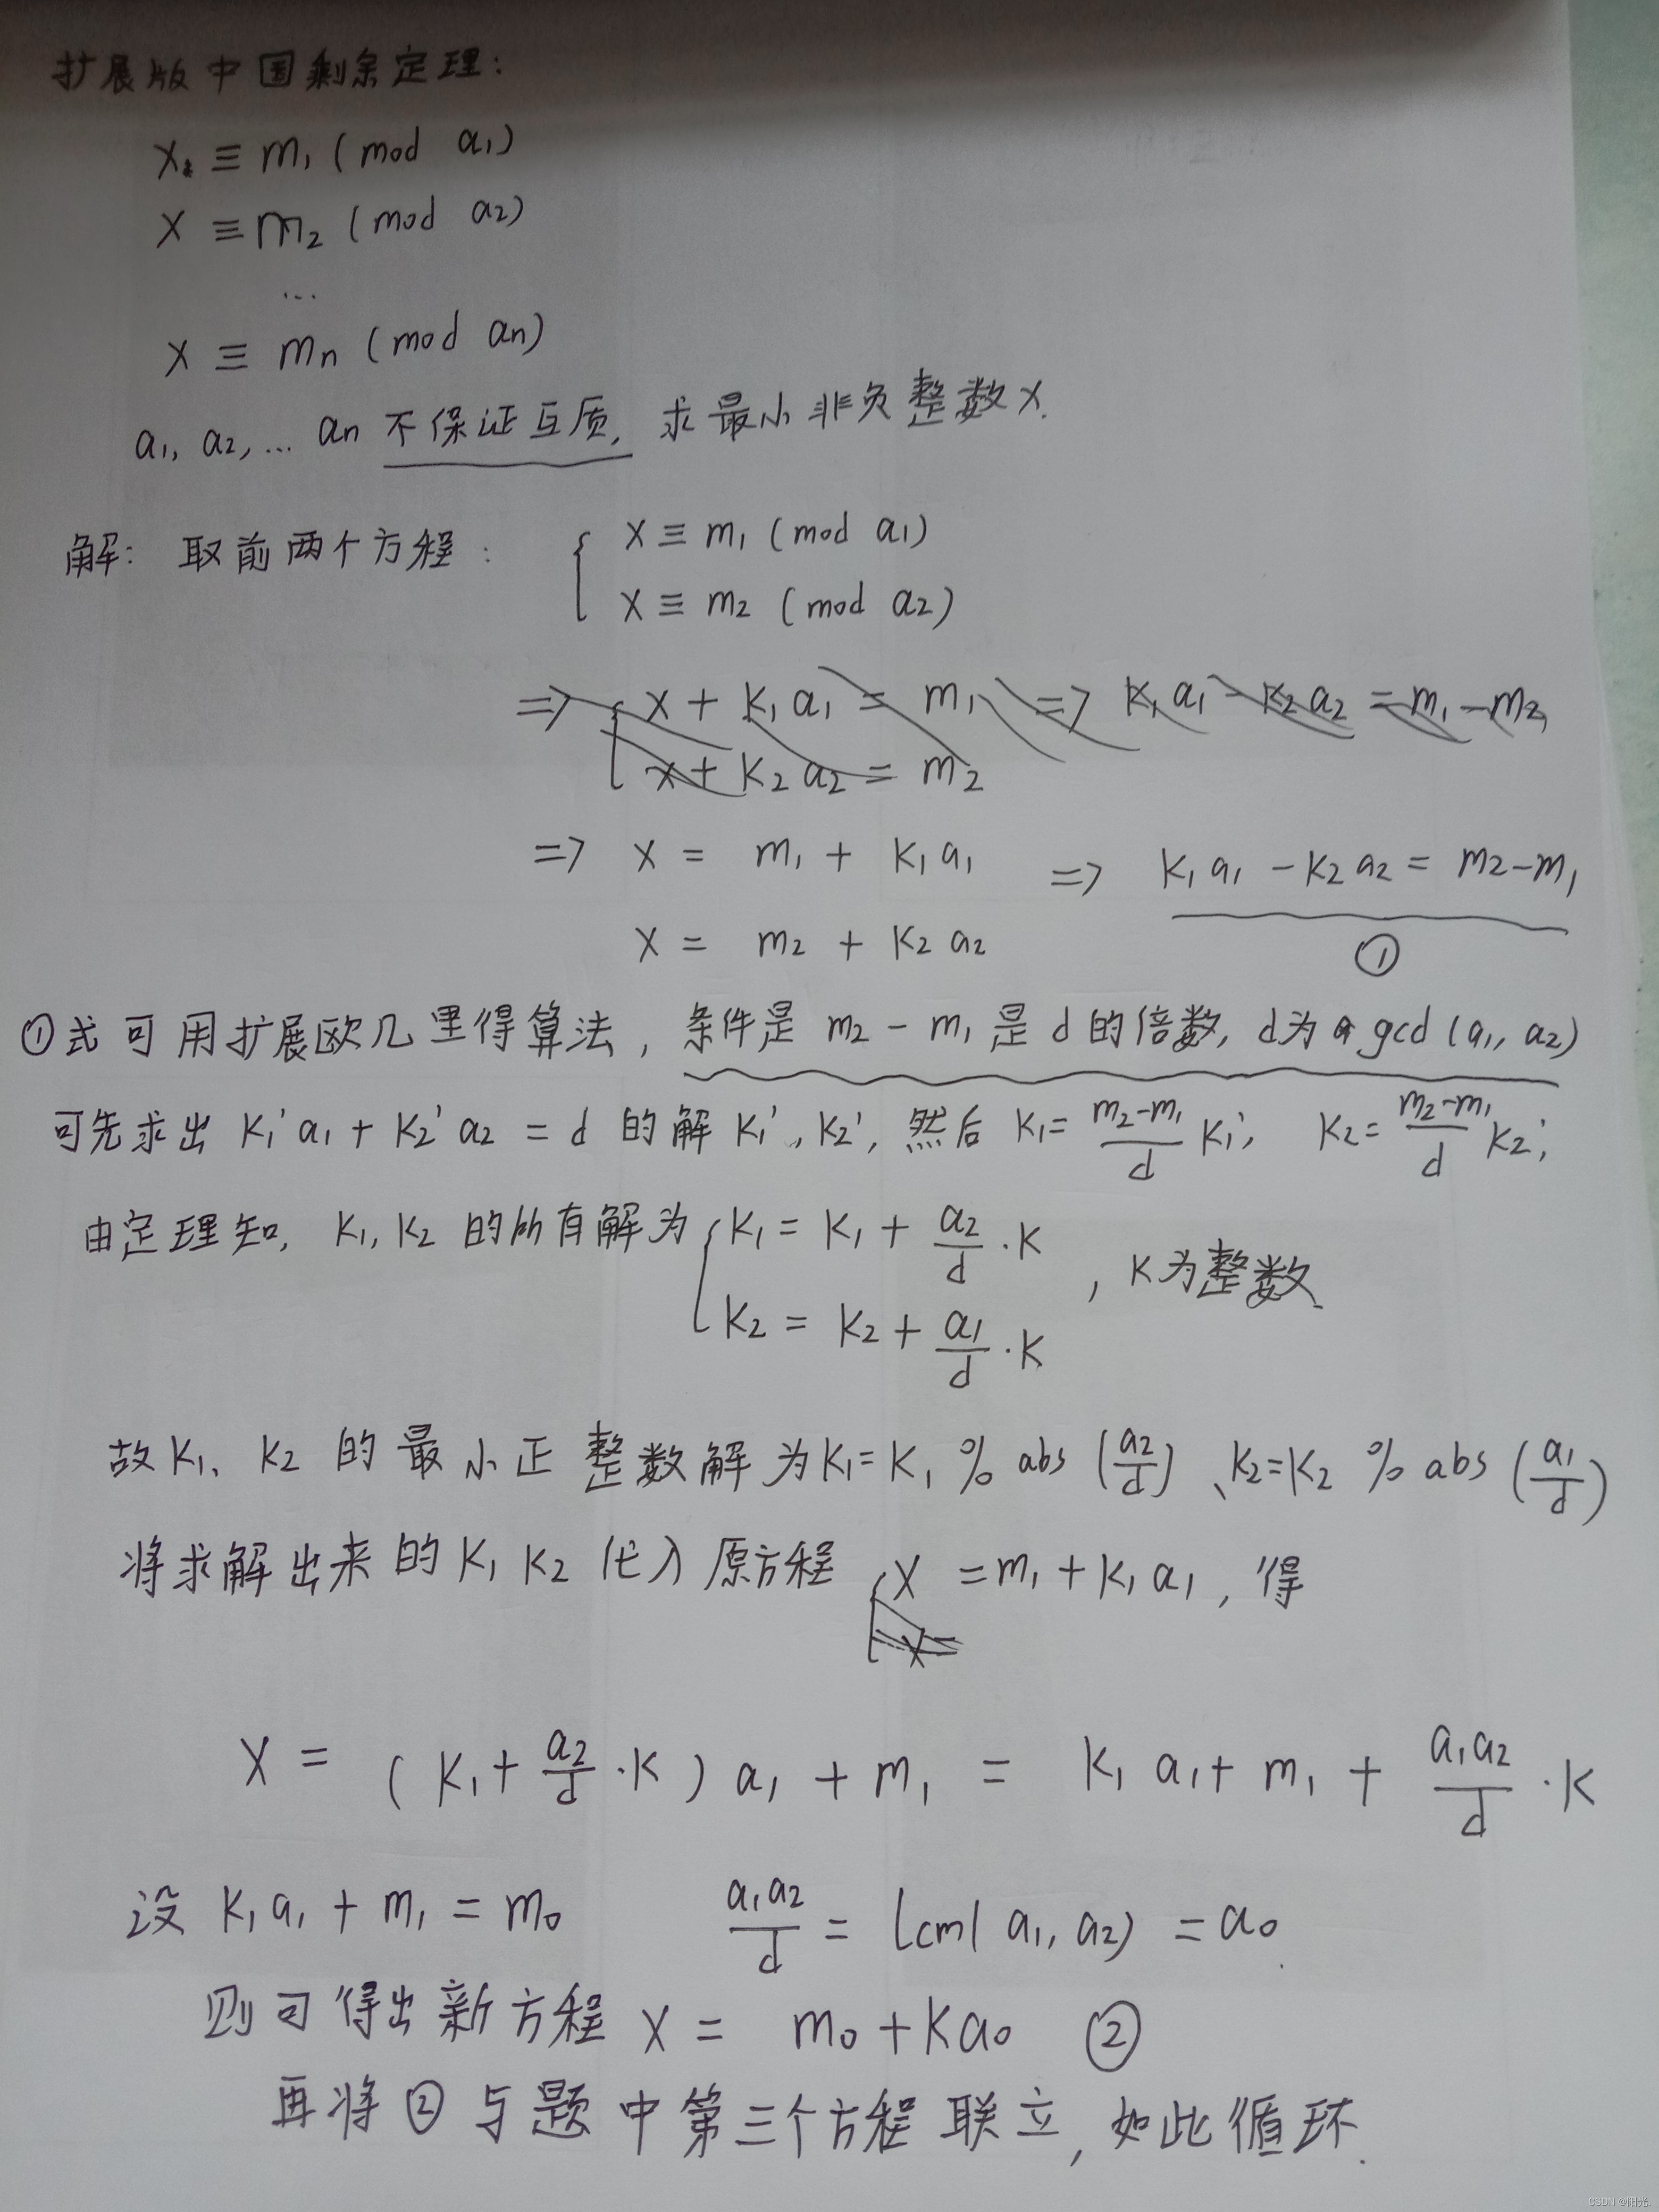 扩展版中国剩余定理:
x ≡ m₁ (mod a₁)
x ≡ m₂ (mod a₂)
...
x ≡ mn (mod an)
a₁, a₂, ... an 不保证互质, 求最小非负整数x.
解: 取前两个方程: { x ≡ m₁ (mod a₁)
x ≡ m₂ (mod a₂)
=> { x + k₁a₁ = m₁ => k₁a₁ - k₂a₂ = m₁ - m₂
x + k₂a₂ = m₂
=> x = m₁ + k₁a₁ => k₁a₁ - k₂a₂ = m₂ - m₁
x = m₂ + k₂a₂ ①
①式可用扩展欧几里得算法, 条件是 m₂ - m₁ 是 d 的倍数, d为 gcd(a₁, a₂)
可先求出 k₁'a₁ + k₂'a₂ = d 的解 k₁', k₂', 然后 k₁ = (m₂-m₁)/d k₁', k₂ = (m₂-m₁)/d k₂';
由定理知, k₁, k₂ 的所有解为 { k₁ = k₁ + a₂/d · k
k₂ = k₂ + a₁/d · k , k为整数
故 k₁、k₂ 的最小正整数解为 k₁ = k₁ % abs(a₂/d)、k₂ = k₂ % abs(a₁/d)
将求解出来的 k₁ k₂ 代入原方程 { x = m₁ + k₁a₁, 得
x =
x = (k₁ + a₂/d · k) a₁ + m₁ = k₁a₁ + m₁ + a₁a₂/d · k
设 k₁a₁ + m₁ = m₀ a₁a₂/d = lcm(a₁, a₂) = a₀
则可得出新方程 x = m₀ + ka₀ ②
再将②与题中第三个方程联立, 如此循环.
CSDN @阳光.